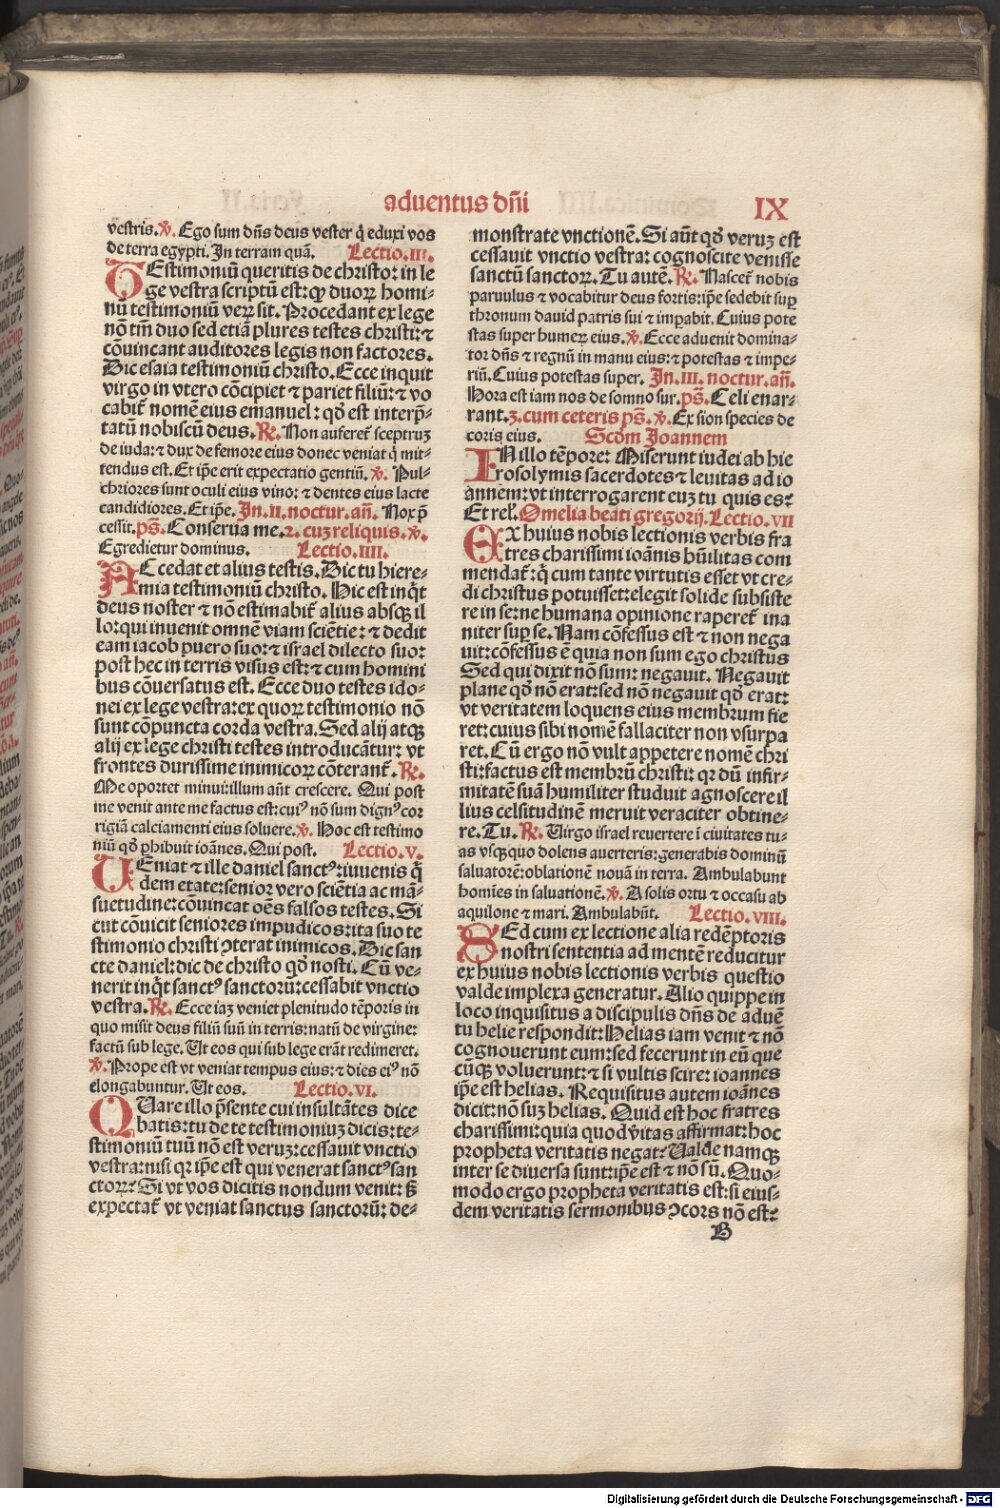 aduentus dn̄i
IX
vestris.℣. Ego sum dn̄s deus vester q̇ eduxi vos
de terra egypti. In terram quā. Lectio.III.
TEstimoniū queritis de christo: in le
ge vestra scriptū est: qꝫ duoꝝ homi-
nū testimoniū veꝝ sit. Procedant ex lege
nō tm̄ duo sed etiā plures testes christi: ⁊
cōuincant auditores legis non factores.
Dic esaia testimoniū christo. Ecce inquit
virgo in vtero cōcipiet ⁊ pariet filiū: ⁊ vo
cabit᷑ nomē eius emanuel: qd̓ est interp̄-
tatū nobiscū deus. ℟. Non auferet᷑ sceptruꝫ
de iuda: ⁊ dux de femore eius donec veniat q̇ mit-
tendus est. Et ip̄e erit expectatio gentiū. ℣. Pul-
chriores sunt oculi eius vino: ⁊ dentes eius lacte
candidiores. Et ip̄e. In.II. noctur. an̄. Nox p̄
cessit. ps̄. Conserua me. 2. cuꝫ reliquis. ℣.
Egredietur dominus. Lectio.IIII.
ACcedat et alius testis. Dic tu hiere-
mia testimoniū christo. Hic est inq̇t
deus noster ⁊ nō estimabit᷑ alius absqꝫ il
lo: qui inuenit omnē viam sciētie: ⁊ dedit
eam iacob puero suo: ⁊ israel dilecto suo:
post hec in terris visus est: ⁊ cum homini
bus cōuersatus est. Ecce duo testes ido-
nei ex lege vestra: ex quoꝝ testimonio nō
sunt cōpuncta corda vestra. Sed alij atqꝫ
alij ex lege christi testes introducāntur: vt
frontes durissime inimicoꝝ cōterant᷑. ℟.
Me oportet minui: illum aūt crescere. Qui post
me venit ante me factus est: cui⁹ nō sum dign⁹ cor
rigiā calciamenti eius soluere. ℣. Hoc est testimo
niū qd̓ ꝑhibuit ioānes. Qui post. Lectio.V.
UEniat ⁊ ille daniel sanct⁹: iuuenis q̇
dem etate: senior vero sciētia ac mā-
suetudine: cōuincat oēs falsos testes. Si
cut cōuicit seniores impudicos: ita suo te
stimonio christi ꝯterat inimicos. Dic san
cte daniel: dic de christo qd̓ nosti. Cū ve-
nerit inq̇t sanct⁹ sanctorū: cessabit vnctio
vestra. ℟. Ecce iaꝫ veniet plenitudo tēporis in
quo misit deus filiū suū in terris: natū de virgine:
factū sub lege. Ut eos qui sub lege erāt redimeret.
℣. Prope est vt veniat tempus eius: ⁊ dies ei⁹ nō
elongabuntur. Ut eos. Lectio.VI.
QUare illo p̄sente cui insultātes dice
batis: tu de te testimoniuꝫ dicis: te-
stimoniū tuū nō est veruꝫ: cessauit vnctio
vestra: nisi qꝛ ip̄e est qui venerat sanct⁹ san
ctoꝝ: Si vt vos dicitis nondum venit: sꝫ
expectat᷑ vt veniat sanctus sanctorū: de-
monstrate vnctionē. Si aūt qd̓ veruꝫ est
cessauit vnctio vestra: cognoscite venisse
sanctū sanctoꝝ. Tu autē. ℟. Nascet᷑ nobis
paruulus ⁊ vocabitur deus fortis: ip̄e sedebit suꝑ
thronum dauid patris sui ⁊ imꝑabit. Cuius pote
stas super humeꝝ eius. ℣. Ecce aduenit domina-
tor dn̄s ⁊ regnū in manu eius: ⁊ potestas ⁊ impe-
riū. Cuius potestas super. In.III. noctur. an̄.
Hora est iam nos de somno sur. ps̄. Celi enar-
rant. 3. cum ceteris ps̄. ℣. Ex sion species de
coris eius. Scd̓m Joannem
IN illo tēpore: Miserunt iudei ab hie
rosolymis sacerdotes ⁊ leuitas ad io
annem: vt interrogarent euꝫ tu quis es?
Et rel̓. Omelia beati gregorij. Lectio.VII
EX huius nobis lectionis verbis fra
tres charissimi ioānis hūilitas com
mendat᷑: q̇ cum tante virtutis esset vt cre-
di christus potuisset: elegit solide subsiste
re in se: ne humana opinione raperet᷑ ina
niter suꝑ se. Nam cōfessus est ⁊ non nega
uit: cōfessus ē quia non sum ego christus
Sed qui dixit nō sum: negauit. Negauit
plane qd̓ nō erat: sed nō negauit qd̓ erat:
vt veritatem loquens eius membrum fie
ret: cuius sibi nomē fallaciter non vsurpa
ret. Cū ergo nō vult appetere nomē chri
sti: factus est membrū christi: qꝛ dū infir-
mitatē suā humiliter studuit agnoscere il
lius celsitudinē meruit veraciter obtine-
re. Tu. ℟. Uirgo israel reuertere ī ciuitates tu-
as vsqꝫquo dolens auerteris: generabis dominū
saluatorē: oblationē nouā in terra. Ambulabunt
homīes in saluationē. ℣. A solis ortu ⁊ occasu ab
aquilone ⁊ mari. Ambulabūt. Lectio.VIII.
SEd cum ex lectione alia redēptoris
nostri sententia ad mentē reducitur
ex huius nobis lectionis verbis questio
valde implexa generatur. Alio quippe in
loco inquisitus a discipulis dn̄s de aduē
tu helie respondit: Helias iam venit ⁊ nō
cognouerunt eum: sed fecerunt in eū que
cūqꝫ voluerunt: ⁊ si vultis scire: ioannes
ip̄e est helias. Requisitus autem ioānes
dicit: nō suꝫ helias. Quid est hoc fratres
charissimi: quia quod v̓itas affirmat: hoc
propheta veritatis negat? Ualde namqꝫ
inter se diuersa sunt: ip̄e est ⁊ nō sū. Quo-
modo ergo propheta veritatis est: si eius-
dem veritatis sermonibus ꝯcors nō est?
B
Digitalisierung gefördert durch die Deutsche Forschungsgemeinschaft - DFG